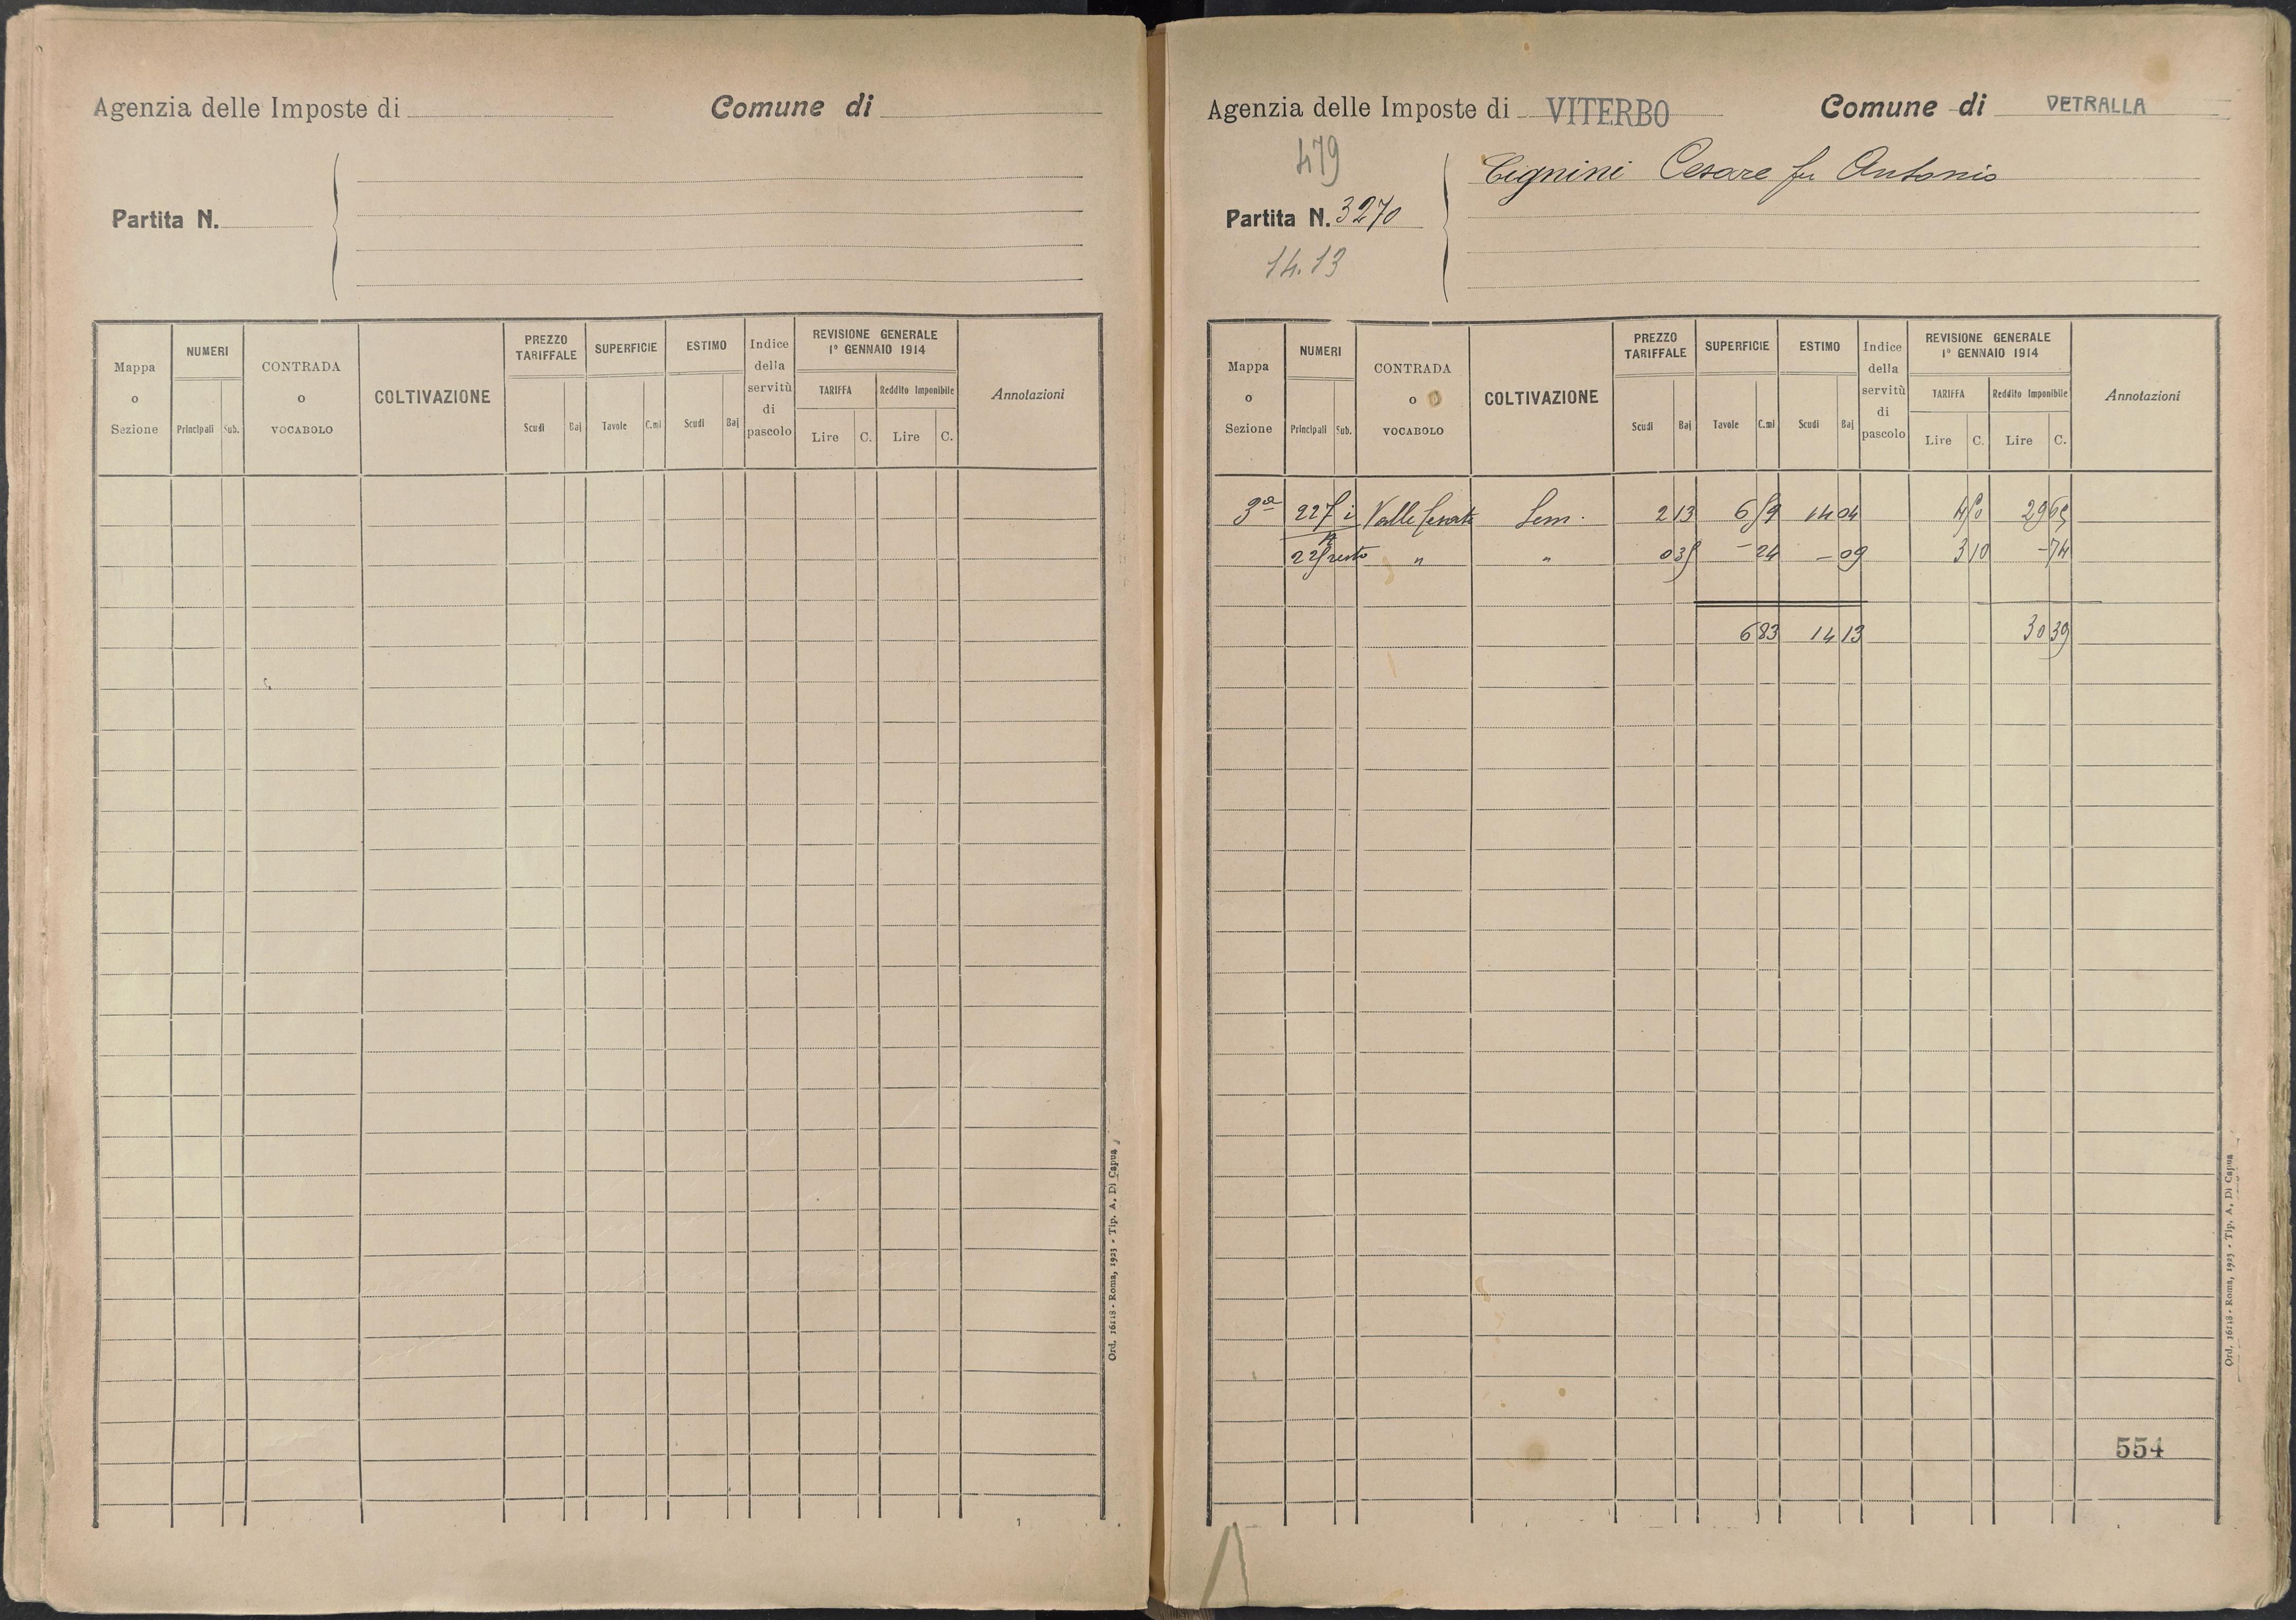 Agenzia delle Imposte di Comune di
Partita N.
Mappa o Sezione NUMERI Principali Sub. CONTRADA o VOCABOLO COLTIVAZIONE PREZZO TARIFFALE Scudi Baj SUPERFICIE Tavole C.mi ESTIMO Scudi Baj Indice della servitù di pascolo REVISIONE GENERALE 1° GENNAIO 1914 TARIFFA Lire C. Reddito Imponibile Lire C. Annotazioni
Ord. 16118 - Roma, 1923 - Tip. A. Di Capua
Agenzia delle Imposte di VITERBO Comune di VETRALLA
479
Cignini Cesare fu Antonio
Partita N. 3270
14.13
Mappa o Sezione NUMERI Principali Sub. CONTRADA o VOCABOLO COLTIVAZIONE PREZZO TARIFFALE Scudi Baj SUPERFICIE Tavole C.mi ESTIMO Scudi Baj Indice della servitù di pascolo REVISIONE GENERALE 1° GENNAIO 1914 TARIFFA Lire C. Reddito Imponibile Lire C. Annotazioni
3a 225 i Valle Sem. 2 13 6 59 14 04 4 50 29 65
225 resto " " 0 35 - 24 - 09 3 10 - 74
6 83 14 13 30 39
554
Ord. 16118 - Roma, 1923 - Tip. A. Di Capua